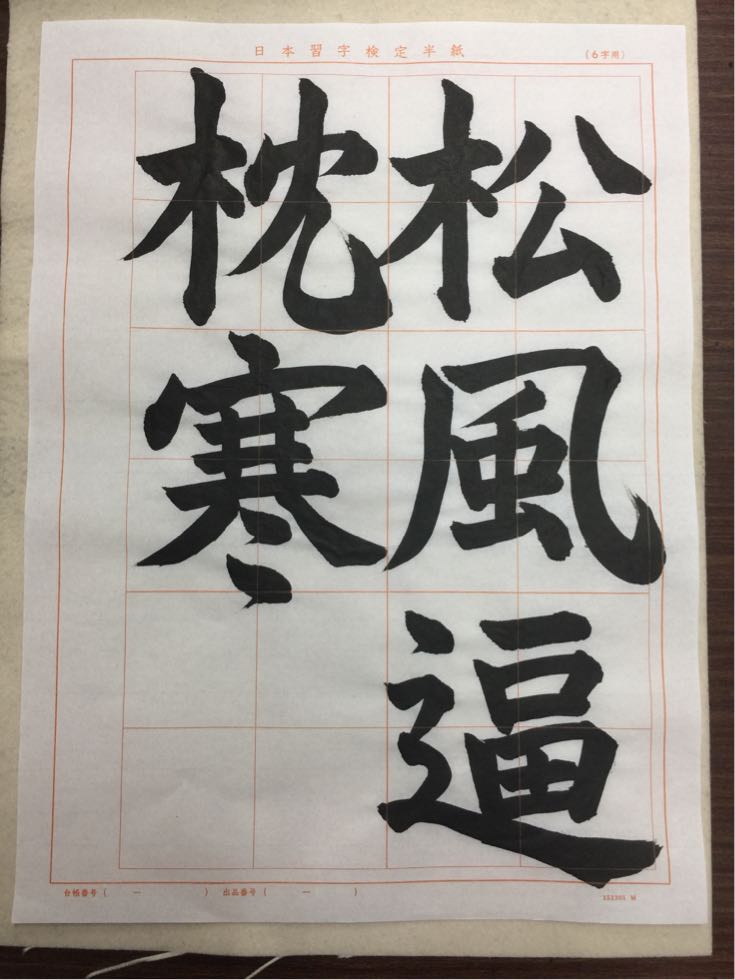 日本習字検定半紙
(6字用)
松風逼
枕寒
台帳番号(　　ー　　)　出品番号(　　ー　　)